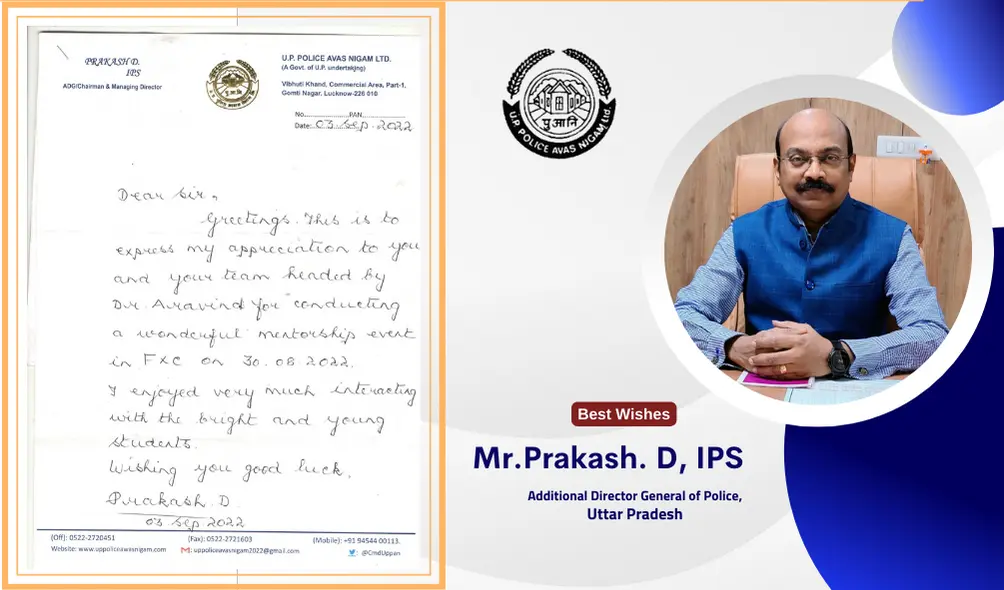 PRAKASH D.
IPS
ADG/Chairman & Managing Director
U.P. POLICE AVAS NIGAM LTD.
(A Govt. of U.P. undertaking)
Vibhuti Khand, Commercial Area, Part-1,
Gomti Nagar, Lucknow-226 010
No....................PAN..............
Date: 03.Sep.2022
Dear Sir,
Greetings. This is to
express my appreciation to you
and your team headed by
Dr. Aravind for conducting
a wonderful mentorship event
in FXC on 30.08.2022.
I enjoyed very much interacting
with the bright and young
students.
Wishing you good luck.
Prakash.D
03 Sep 2022
(Off): 0522-2720451 (Fax): 0522-2721603 (Mobile): +91 94544 00113.
Website: www.uppoliceavasnigam.com : uppoliceavasnigam2022@gmail.com : @CmdUppan
पु आ नि
U.P. POLICE AVAS NIGAM Ltd.
Best Wishes
Mr.Prakash. D, IPS
Additional Director General of Police,
Uttar Pradesh